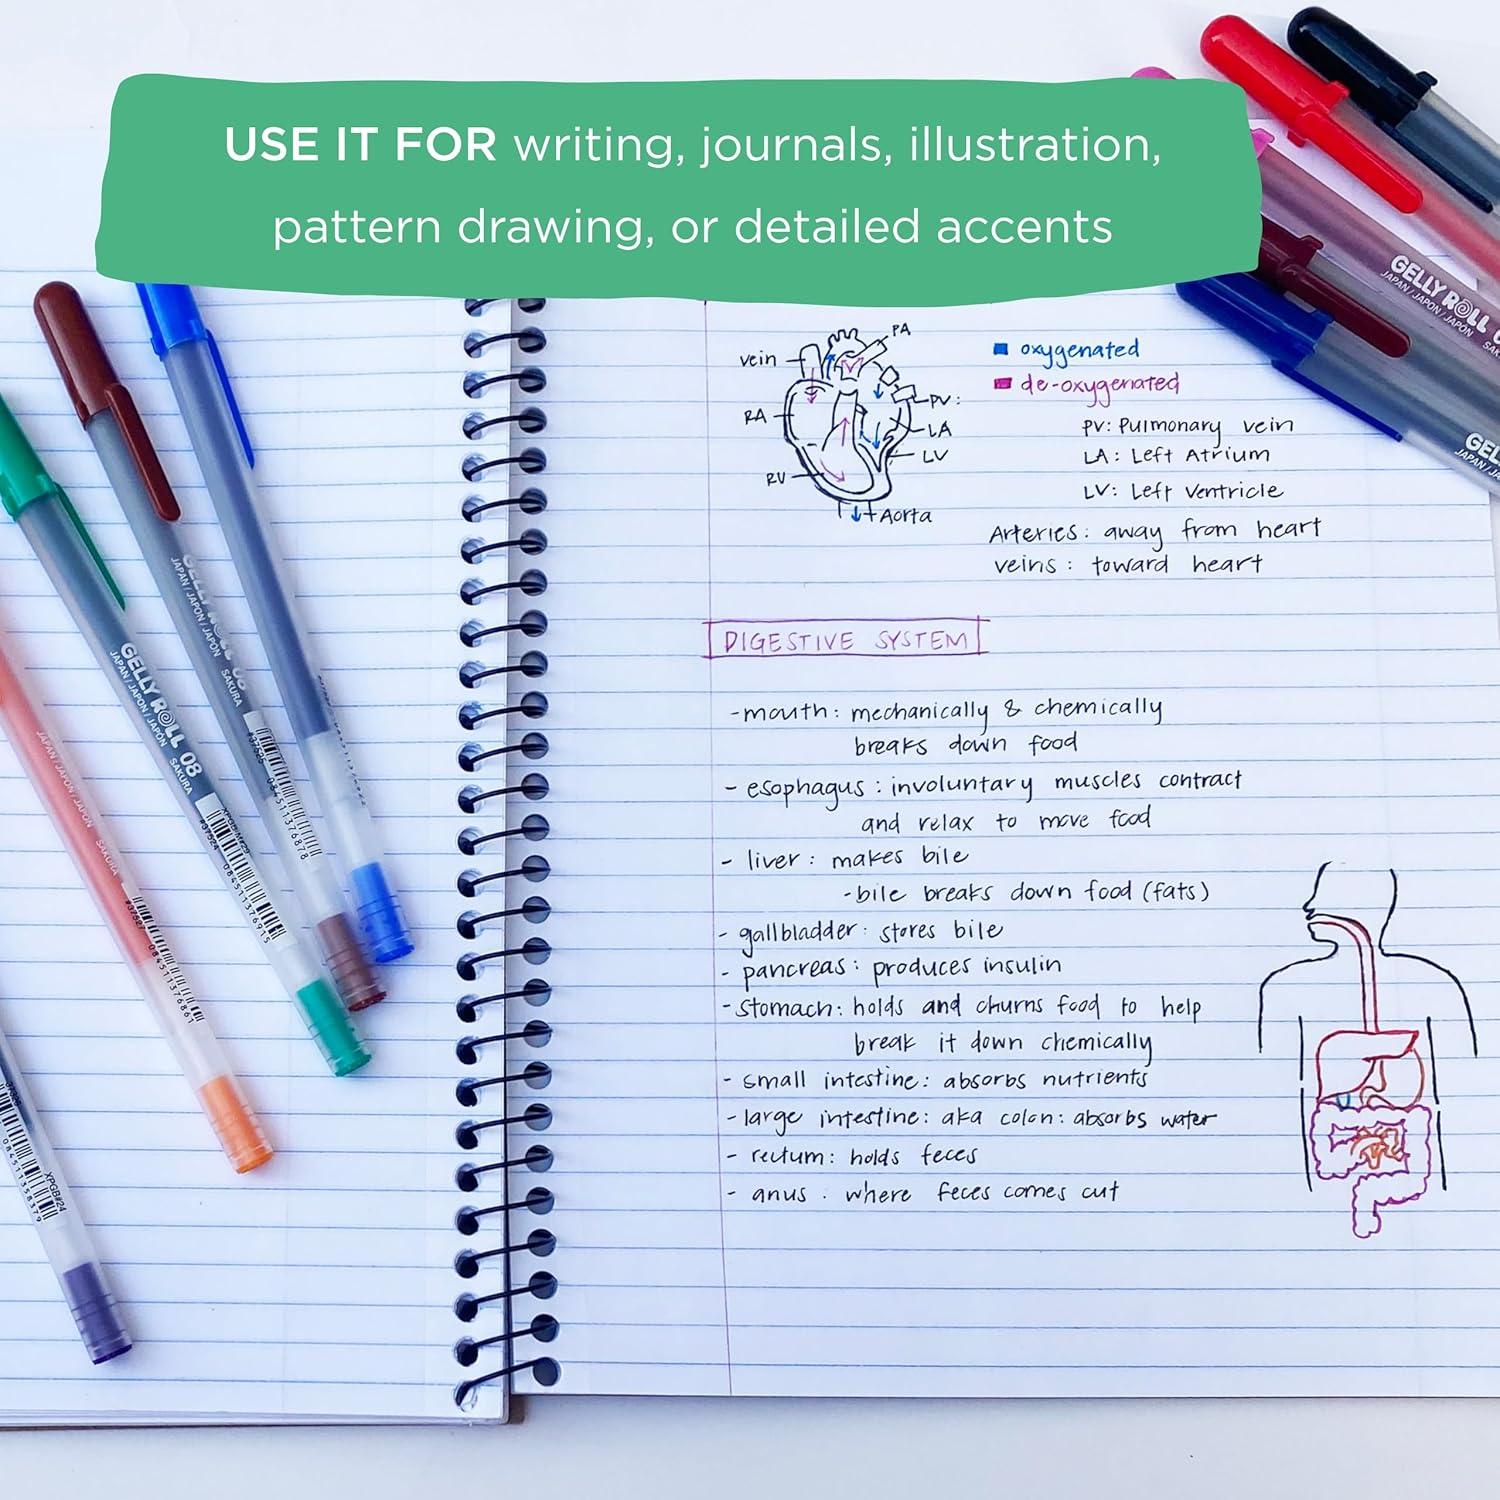 USE IT FOR writing, journals, illustration,
pattern drawing, or detailed accents
PA
vein
RA
PV:
LA
LV
RV
Aorta
oxygenated
de-oxygenated
PV: Pulmonary vein
LA: Left Atrium
LV: Left Ventricle
Arteries: away from heart
veins: toward heart
DIGESTIVE SYSTEM
-mouth: mechanically & chemically
breaks down food
- esophagus: involuntary muscles contract
and relax to move food
- liver: makes bile
-bile breaks down food (fats)
- gallbladder: stores bile
- pancreas: produces insulin
-stomach: holds and churns food to help
break it down chemically
- small intestine: absorbs nutrients
-large intestine: aka colon: absorbs water
- rectum: holds feces
- anus: where feces comes out
GELLY ROLL
JAPAN / JAPON / JAPÓN
GEL
JAPAN
GELLY ROLL 08
JAPAN / JAPON / JAPÓN SAKURA
GELLY ROLL 08
JAPAN / JAPON / JAPÓN SAKURA
#37524
084511376915
084511376878
JAPAN / JAPON / JAPÓN SAKURA
084511376861
XPGB#24
084511358379